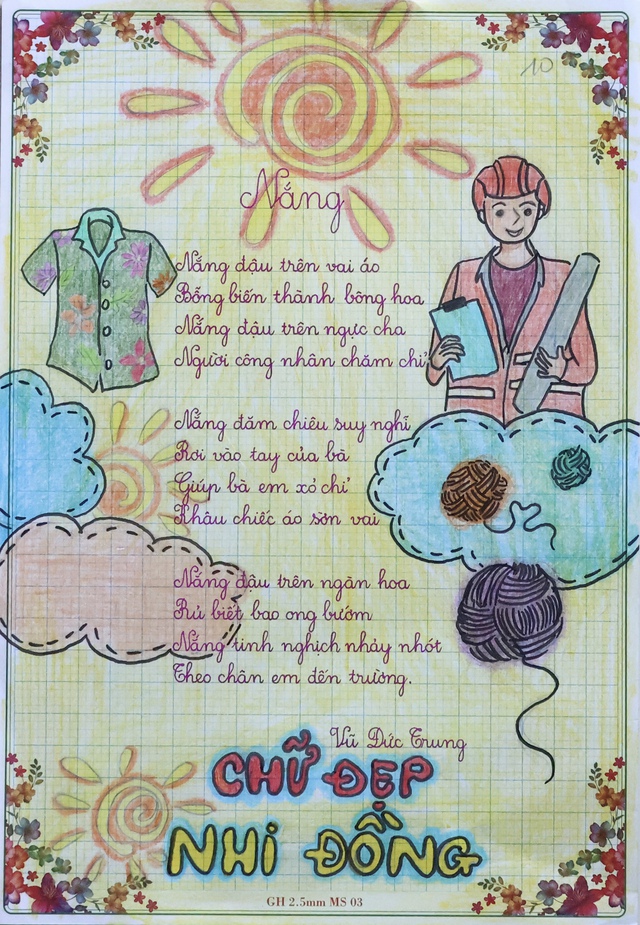 10
Nắng
Nắng đậu trên vai áo
Bỗng biến thành bông hoa
Nắng đậu trên ngực cha
Người công nhân chăm chỉ
Nắng đăm chiêu suy nghĩ
Rơi vào tay của bà
Giúp bà em xỏ chỉ
Khâu chiếc áo sờn vai
Nắng đậu trên ngàn hoa
Rủ biết bao ong bướm
Nắng tinh nghịch nhảy nhót
Theo chân em đến trường.
Vũ Đức Trung
CHỮ ĐẸP
NHI ĐỒNG
GH 2.5mm MS 03